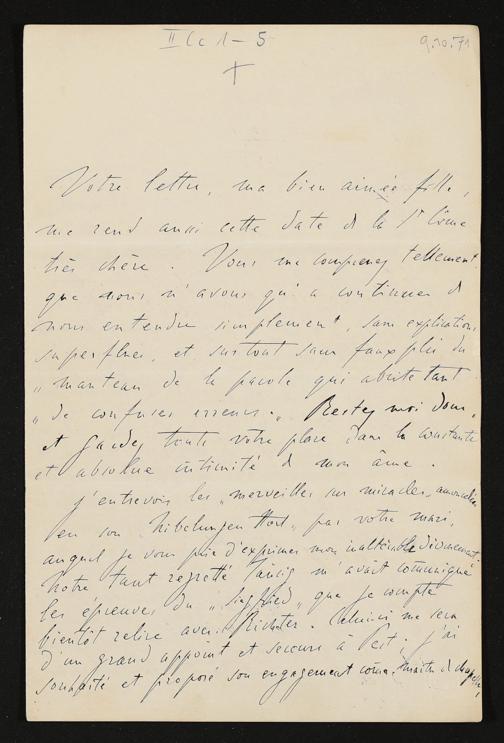 II Cc 1 – 5
9.10.71
+
Votre lettre, ma bien aimée fille,
me rend aussi cette date de la St Côme
très chère. Vous me comprenez tellement
que nous n'avons qu'à continuer de
nous entendre simplement, sans explications
superflues, et surtout sans faux plis du
„manteau de la parole qui abrite tant
„de confuses erreurs." Restez moi donc,
et gardez toute votre place dans la constante
et absolue intimité de mon âme.
J'entrevois les „merveilles sur miracles, amoncelées
en son Nibelungen Hort," par votre mari,
auquel je vous prie d'exprimer mon inaltérable dévouement.
Notre tant regretté Tausig m'avait communiqué
les épreuves du „Siegfried" que je compte
bientôt relire avec Richter. Celui-ci me sera
d'un grand appoint et secours à Pest; j'ai
souhaité et proposé son engagement comme maître de chapelle,